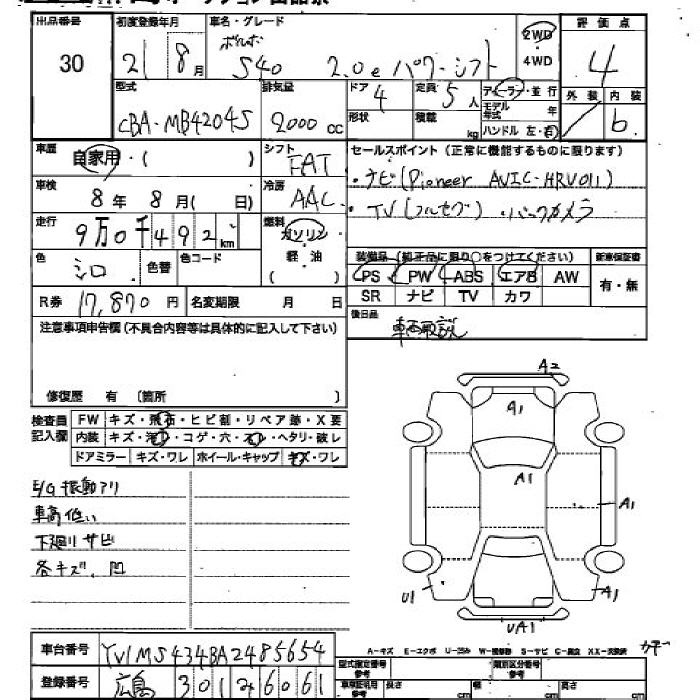 出品番号 初度登録年月 車名・グレード 評価点
30 21 8月 ボルボ S40 2.0e パワーシフト 2WD 4WD 4
型式 排気量 ドア 4 定員 5人 ディーラー・並行 外装 内装
CBA-MB4204S 2000 cc 形状 積載 kg モデル年式 年 ハンドル 左・右 b
車歴 自家用・( ) シフト FAT セールスポイント(正常に機能するものに限ります)
車検 8年8月( 日) 冷房 AAC ・ナビ(Pioneer AVIC-HRV011)
・TV(フルセグ)・バックカメラ
走行 9万0千492km 燃料 ガソリン 軽油 ( )
色 シロ 色替 色コード
装備品(純正品に限り○をつけてください) 新車保証書
PS PW ABS エアB AW 有・無
SR ナビ TV カワ
R券 17,870円 名変期限 月 日 後日品 車両取説
注意事項申告欄(不具合内容等は具体的に記入して下さい)
修復歴 有 〔箇所 〕
検査員記入欄 FW キズ・飛石・ヒビ割・リペア跡・X要
内装 キズ・汚レ・コゲ・穴・スレ・ヘタリ・破レ
ドアミラー キズ・ワレ ホイール・キャップ キズ・ワレ
E/G振動アリ
車高低い
下廻リサビ
各キズ、凹
A2
A1
A1
A1
U1
A1
UA1
A-キズ E-エクボ U-凹み W-補修跡 S-サビ C-腐食 XX-交換済
車台番号 YV1MS434BA2485654
登録番号 広島 301 そ 6061
型式指定番号 参考 類別区分番号 参考
車庫証明用 参考 長さ cm 幅 cm 高さ cm